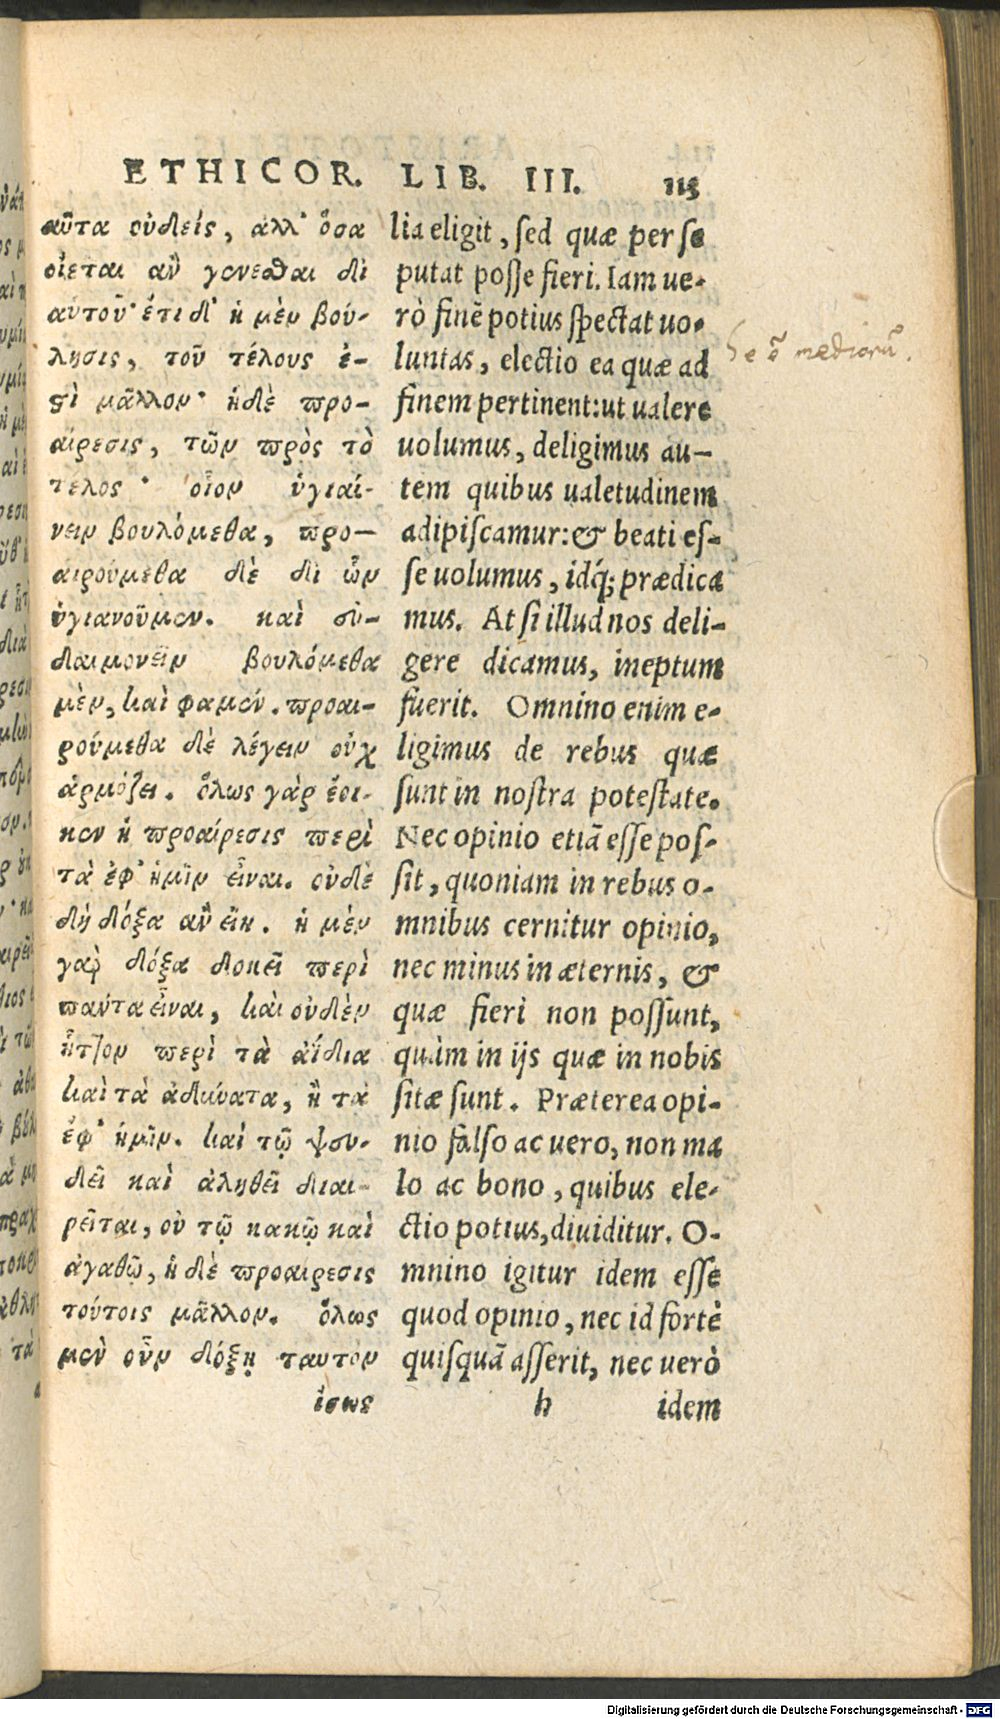 ETHICOR. LIB. III. 115
αῦτα οὐδείς, ἀλλ' ὅσα
οἴεται ἂν γενέσθαι δι
αὑτοῦ· ἔτι δ' ἡ μὲν βού-
λησις, τοῦ τέλους ἐ-
ϛὶ μᾶλλον· ἡ δὲ προ-
αίρεσις, τῶν πρὸς τὸ
τέλος· οἷον ὑγιαί-
νειν βουλόμεθα, προ-
αιρούμεθα δὲ δι ὧν
ὑγιανοῦμεν. καὶ εὐ-
δαιμονεῖν βουλόμεθα
μὲν, καὶ φαμέν. προαι-
ρούμεθα δὲ λέγειν οὐχ
ἁρμόζει. ὅλως γὰρ ἔοι-
κεν ἡ προαίρεσις περὶ
τὰ ἐφ' ἡμῖν εἶναι. οὐδὲ
δὴ δόξα ἂν εἴη. ἡ μὲν
γὰρ δόξα δοκεῖ περὶ
πάντα εἶναι, καὶ οὐδὲν
ἧττον περὶ τὰ ἀΐδια
καὶ τὰ ἀδύνατα, ἢ τὰ
ἐφ' ἡμῖν. καὶ τῷ ψευ-
δεῖ καὶ ἀληθεῖ διαι-
ρεῖται, οὐ τῷ κακῷ καὶ
ἀγαθῷ, ἡ δὲ προαιρεσις
τούτοις μᾶλλον. ὅλως
μὲν οὖν δόξῃ ταυτὸν
ἴσως
lia eligit, sed quæ per se
putat posse fieri. Iam ue-
rò finẽ potius spectat uo-
luntas, electio ea quæ ad
finem pertinent: ut ualere
uolumus, deligimus au-
tem quibus ualetudinem
adipiscamur: & beati es-
se uolumus, idq́; prædica
mus. At si illud nos deli-
gere dicamus, ineptum
fuerit. Omnino enim e-
ligimus de rebus quæ
sunt in nostra potestate.
Nec opinio etiã esse pos-
sit, quoniam in rebus o-
mnibus cernitur opinio,
nec minus in æternis, &
quæ fieri non possunt,
quàm in ijs quæ in nobis
sitæ sunt. Præterea opi-
nio falso ac uero, non ma
lo ac bono, quibus ele-
ctio potius, diuiditur. O-
mnino igitur idem esse
quod opinio, nec id fortè
quisquã asserit, nec uerò
h idem
mediorũ.
Digitalisierung gefördert durch die Deutsche Forschungsgemeinschaft - DFG